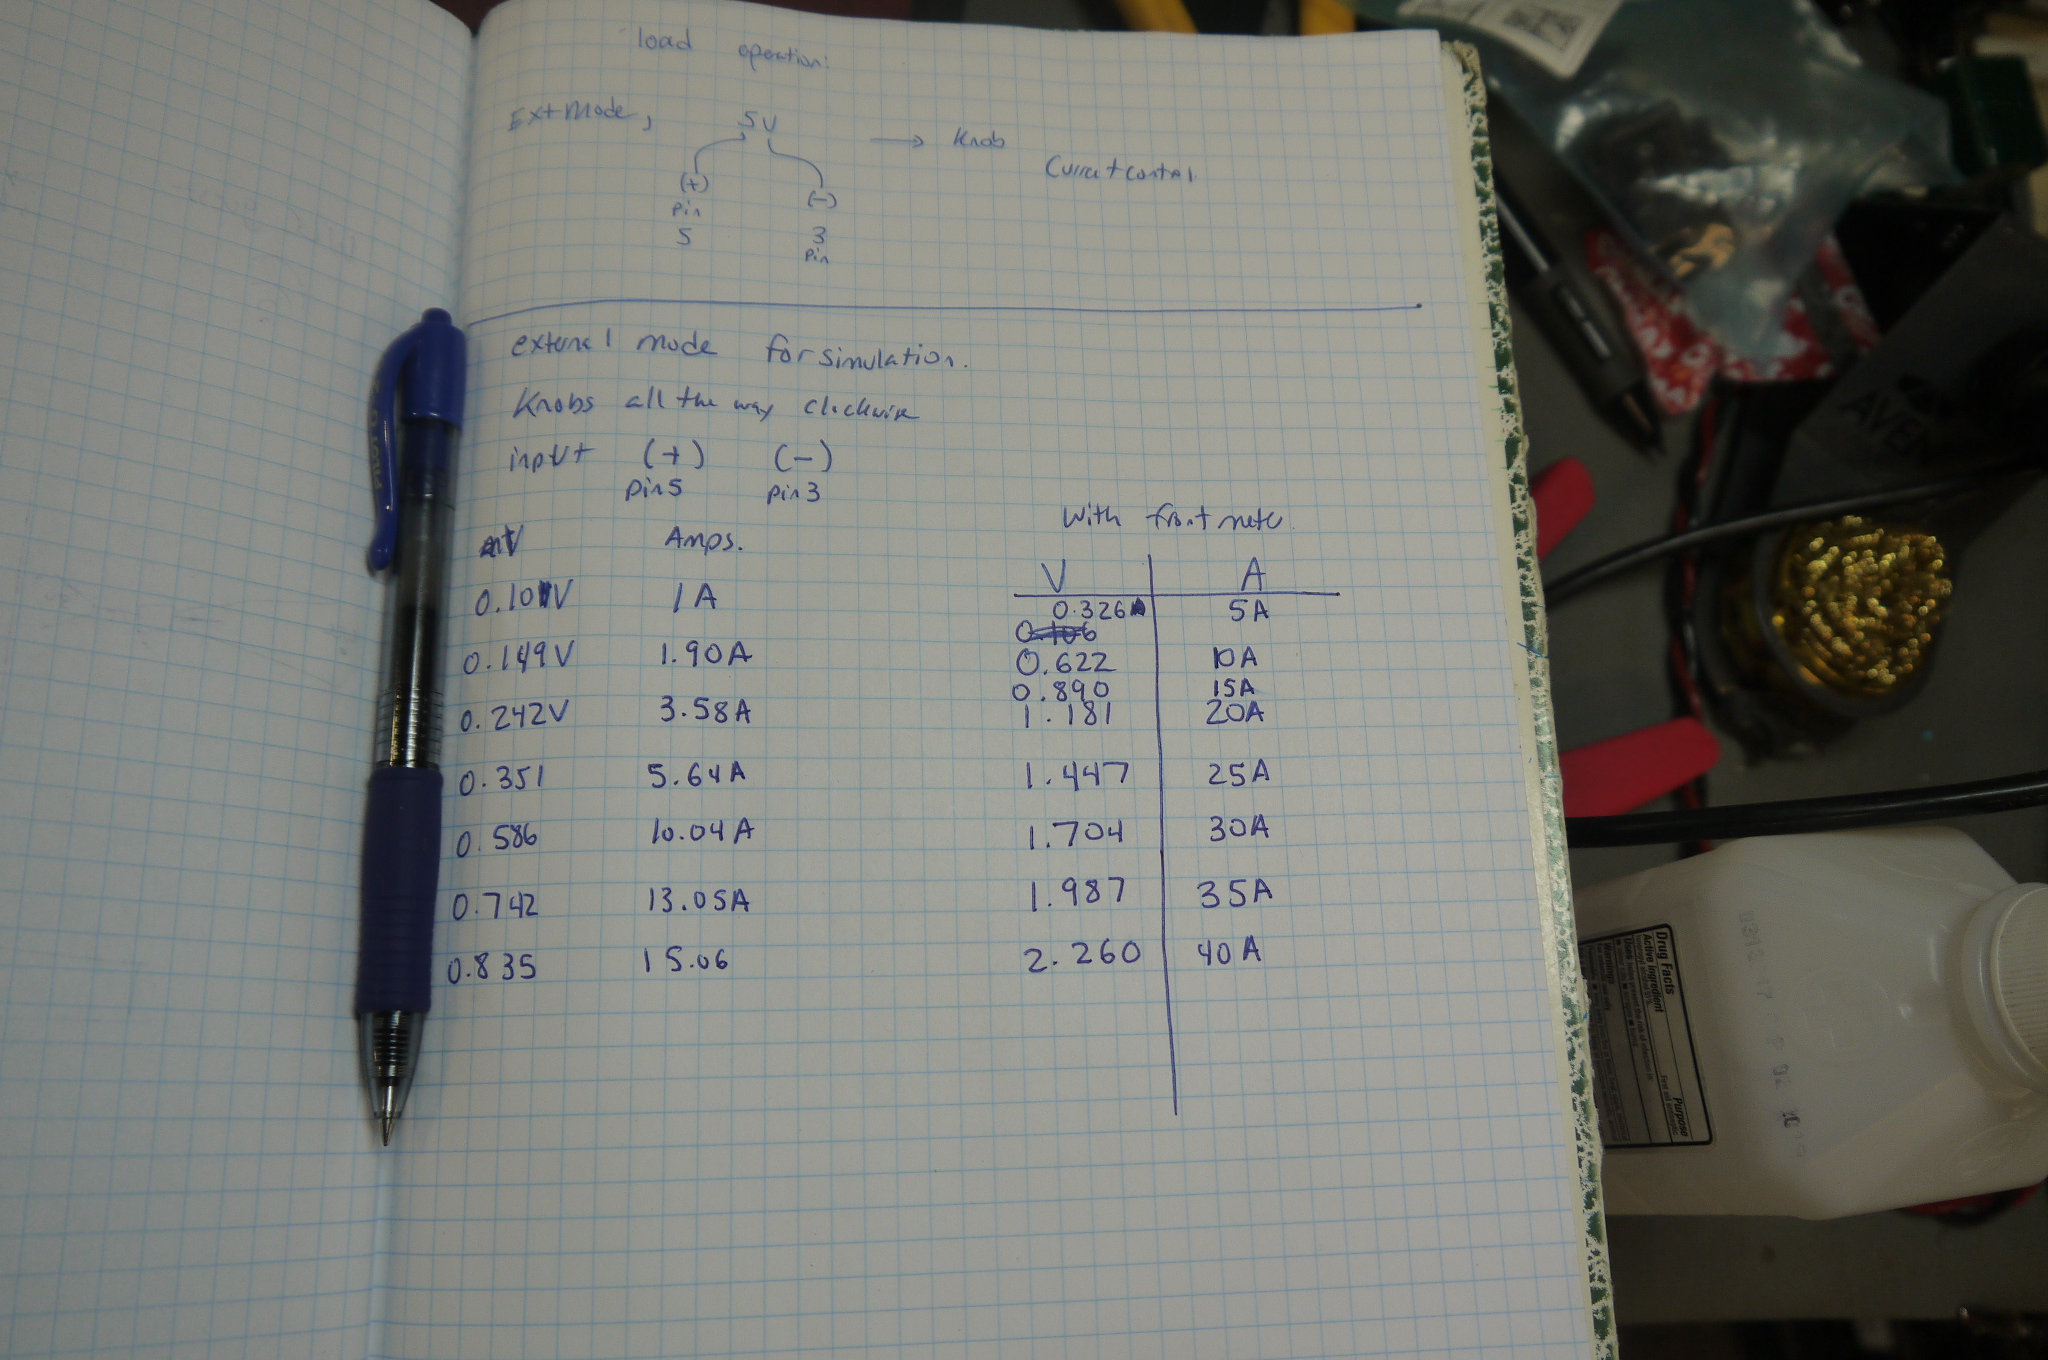 load operation:
Ext Mode, 5V → Knob
Current control
(+) (-)
pin 3
5 pin
external mode for simulation.
Knobs all the way clockwise
input (+) (-)
pin5 pin3
With front meter
V Amps.
V A
0.101V 1A
0.326 5A
0.106
0.149V 1.90A
0.622 10A
0.890 15A
0.242V 3.58A
1.181 20A
0.351 5.64A
1.447 25A
0.586 10.04A
1.704 30A
0.742 13.05A
1.987 35A
0.835 15.06
2.260 40A
AVEN
Drug Facts
Active ingredient
Purpose
Uses
Warnings